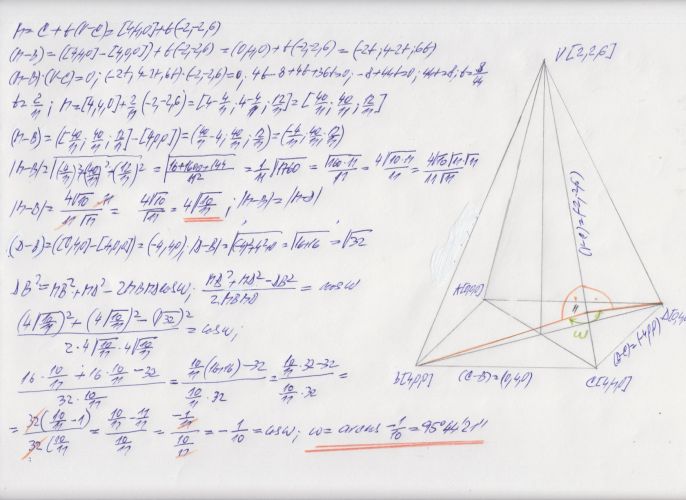 M = C + t(V-C) = [4,4,0] + t(-2,-2,6)
(M-B) = ([4,4,0] - [4,0,0]) + t(-2,-2,6) = (0,4,0) + t(-2,-2,6) = (-2t, 4-2t, 6t)
(M-B)·(V-C) = 0; (-2t, 4-2t, 6t)·(-2,-2,6) = 0; 4t-8+4t+36t=0; -8+44t=0; 44t=8; t=8/44
t=2/11; M = [4,4,0] + 2/11(-2,-2,6) = [4-4/11; 4-4/11; 12/11] = [40/11; 40/11; 12/11]
(M-B) = ([40/11; 40/11; 12/11] - [4,0,0]) = (40/11-4; 40/11; 12/11) = (-4/11; 40/11; 12/11)
|M-B| = √(4/11)²+(40/11)²+(12/11)² = √16+1600+144/11² = 1/11 √1760 = √160·11/11 = 4√10·11/11 = 4√10 √11·√11/11 √11
|M-B| = 4√10·11/11 √11 = 4√10/√11 = 4√10/11; |M-B| = |M-D|
(D-B) = ([0,4,0] - [4,0,0]) = (-4,4,0); |D-B| = √(-4)²+4²+0 = √16+16 = √32
DB² = MB² + MD² - 2MB MD cosω; MB² + MD² - DB²/2MB MD = cosω
(4√10/11)² + (4√10/11)² - (√32)²/2·4√10/11·4√10/11 = cosω;
16·10/11 + 16·10/11 - 32/32·10/11 = 10/11(16+16)-32/10/11·32 = 10/11·32-32/10/11·32 =
= 32(10/11-1)/32(10/11) = 10/11-11/11/10/11 = -1/11/10/11 = -1/10 = cosω; ω = arccos -1/10 = 95°44'21"
V[2,2,6]
(V-C)=(-2,-2,6)
A[0,0,0]
M
D[0,4,0]
ω
(D-C)=(-4,0,0)
B[4,0,0]
(C-B)=(0,4,0)
C[4,4,0]